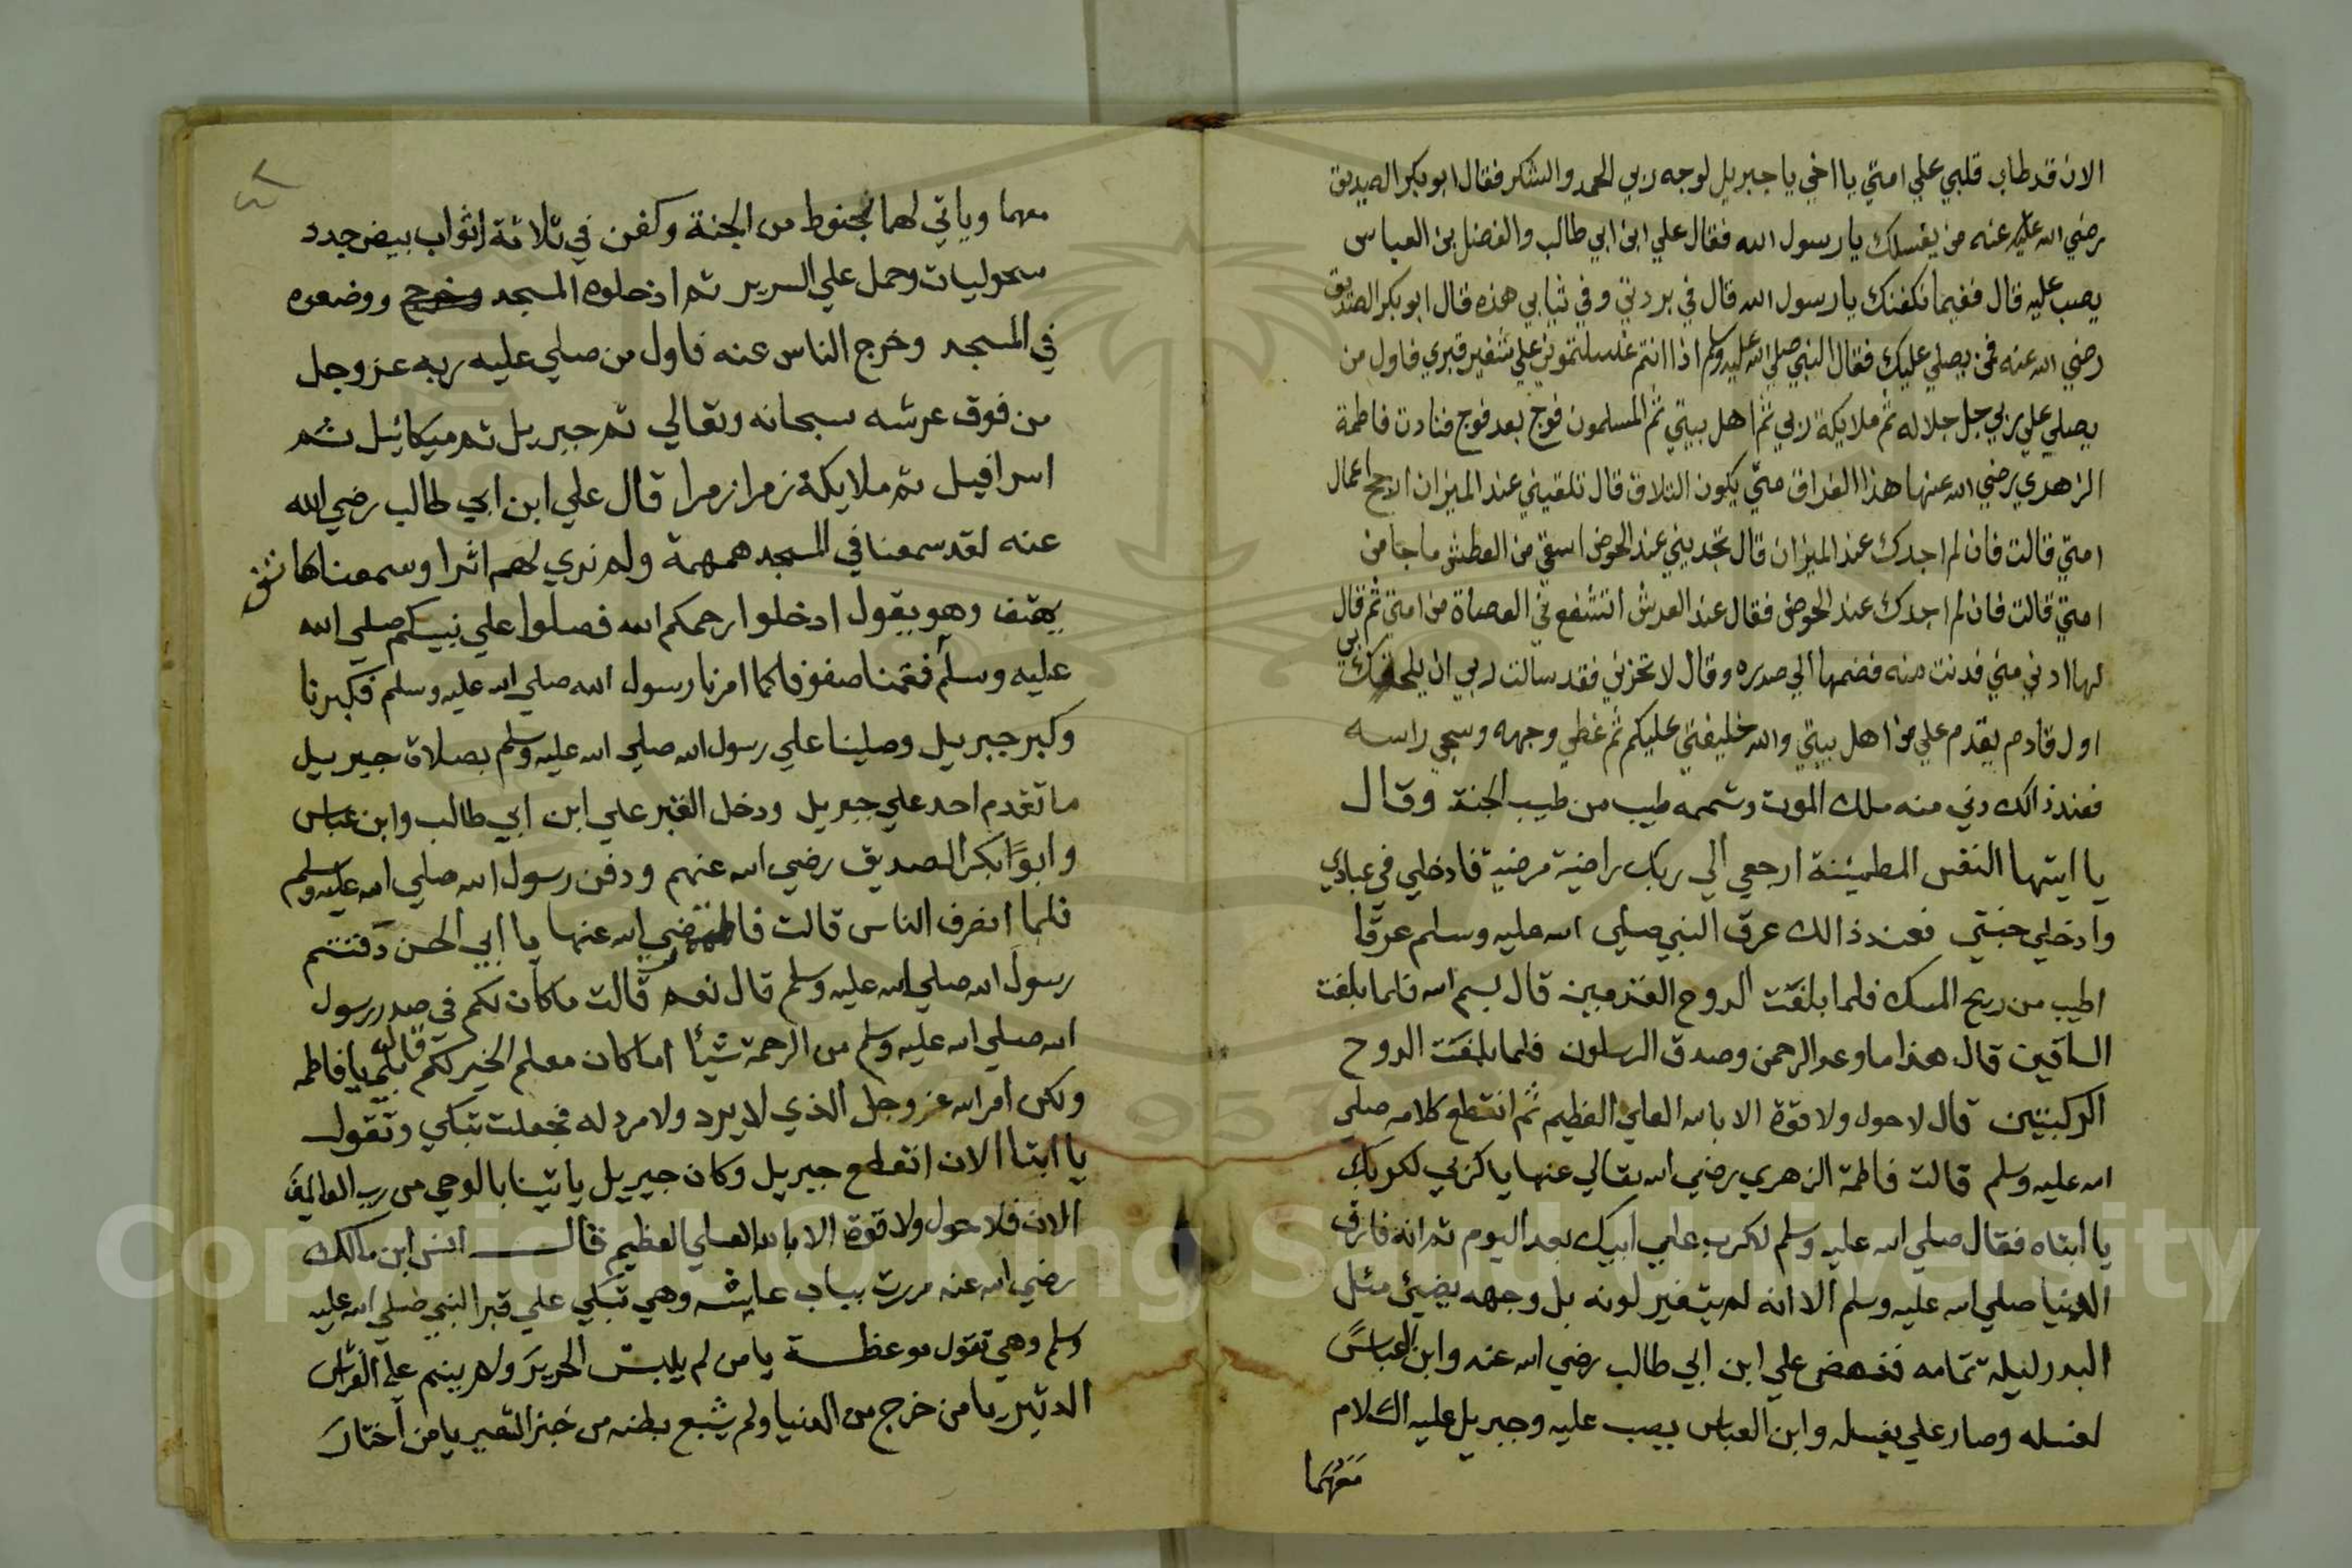 الان قد طاب قلبي علي امتي يا اخي يا جبريل لوجه ربي الحمد والشكر فقال ابو بكر الصديق
رضي الله عليه عنه من يغسلك يا رسول الله فقال علي ابن ابي طالب والفضل بن العباس
يصب عليه قال ففيما نكفنك يا رسول الله قال في بردتي وفي ثيابي هذه قال ابو بكر الصديق
رضي الله عنه فمن يصلي عليك فقال النبي صلي الله عليه وسلم اذا انتم غسلتموني علي شفير قبري فاول من
يصلي علي ربي جل جلاله ثم ملايكة ربي ثم اهل بيتي ثم المسلمون فوج بعد فوج فنادت فاطمة
الزهري رضي الله عنها هذا الفراق متي يكون التلاق قال تلقيني عند الميزان ارجح اعمال
امتي قالت فان لم اجدك عند الميزان قال تجديني عند الحوض اسقي من العطش ما جا من
امتي قالت فان لم اجدك عند الحوض فقال عند العرش اتشفع في العصاة من امتي ثم قال
لها ادني مني فدنت منه فضمها الي صدره وقال لا تحزني فقد سالت ربي ان يلحقك بي
اول قادم يقدم علي من اهل بيتي والله خليفتي عليكم ثم غطي وجهه وسجي راسه
فعند ذالك دني منه ملك الموت وشممه طيب من طيب الجنة وقال
يا ايتها النفس المطمئنة ارجعي الي ربك راضية مرضية فادخلي في عبادي
وادخلي جنتي فعند ذالك عرق النبي صلي الله عليه وسلم عرقا
اطيب من ريح المسك فلما بلغت الروح القدمين قال بسم الله فلما بلغت
الساقين قال هذا ما وعد الرحمن وصدق المرسلون فلما بلغت الروح
الركبتين قال لا حول ولا قوة الا بالله العلي العظيم ثم انقطع كلامه صلي
الله عليه وسلم قالت فاطمة الزهري رضي الله تعالي عنها يا كربي لكربك
يا ابتاه فقال صلي الله عليه وسلم لا كرب علي ابيك بعد اليوم ثم انه فارق
الدنيا صلي الله عليه وسلم الا انه لم يتغير لونه بل وجهه يضيئ مثل
البدر ليلة تمامه فنهض علي ابن ابي طالب رضي الله عنه وابن العباس
لغسله وصار علي يغسله وابن العباس يصب عليه وجبريل عليه السلام
معهما
معهما وياتي لهما بحنوط من الجنة وكفن في ثلاثة اثواب بيض جدد
سحوليات وحمل علي السرير ثم ادخلوه المسجد وخرج ووضعوه
في المسجد وخرج الناس عنه فاول من صلي عليه ربه عز وجل
من فوق عرشه سبحانه وتعالي ثم جبريل ثم ميكائيل ثم
اسرافيل ثم ملايكة زمرا زمرا قال علي ابن ابي طالب رضي الله
عنه لقد سمعنا في المسجد همهمة ولم نري لهم اثرا وسمعنا هاتف
يهتف وهو يقول ادخلوا رحمكم الله فصلوا علي نبيكم صلي الله
عليه وسلم فقمنا صفوفا كما امرنا رسول الله صلي الله عليه وسلم فكبرنا
وكبر جبريل وصلينا علي رسول الله صلي الله عليه وسلم بصلاة جبريل
ما تقدم احد علي جبريل ودخل القبر علي ابن ابي طالب وابن عباس
وابو ابكر الصديق رضي الله عنهم ودفن رسول الله صلي الله عليه وسلم
فلما انصرف الناس قالت فاطمة رضي الله عنها يا ابي الحسن دفنتم
رسول الله صلي الله عليه وسلم قال نعم قالت ما كان لكم في صدر رسول
الله صلي الله عليه وسلم من الرحمة شيئا اما كان معلم الخير لكم قال بلي يا فاطمه
ولكن امر الله عز وجل الذي لا يرد ولا مرد له فجعلت تبكي وتقول
يا ابتا الان انقطع جبريل وكان جبريل ياتينا بالوحي من رب العالمين
الان فلا حول ولا قوة الا بالله العلي العظيم قال انس ابن مالك
رضي الله عنه مررت بباب عايشه وهي تبكي علي قبر النبي صلي الله عليه
وسلم وهي تقول موعظة يا من لم يلبس الحرير ولم ينم علي الفراش
الدثير يا من خرج من الدنيا ولم يشبع بطنه من خبز الشعير يا من اختار
Copyright © King Saud University
1957